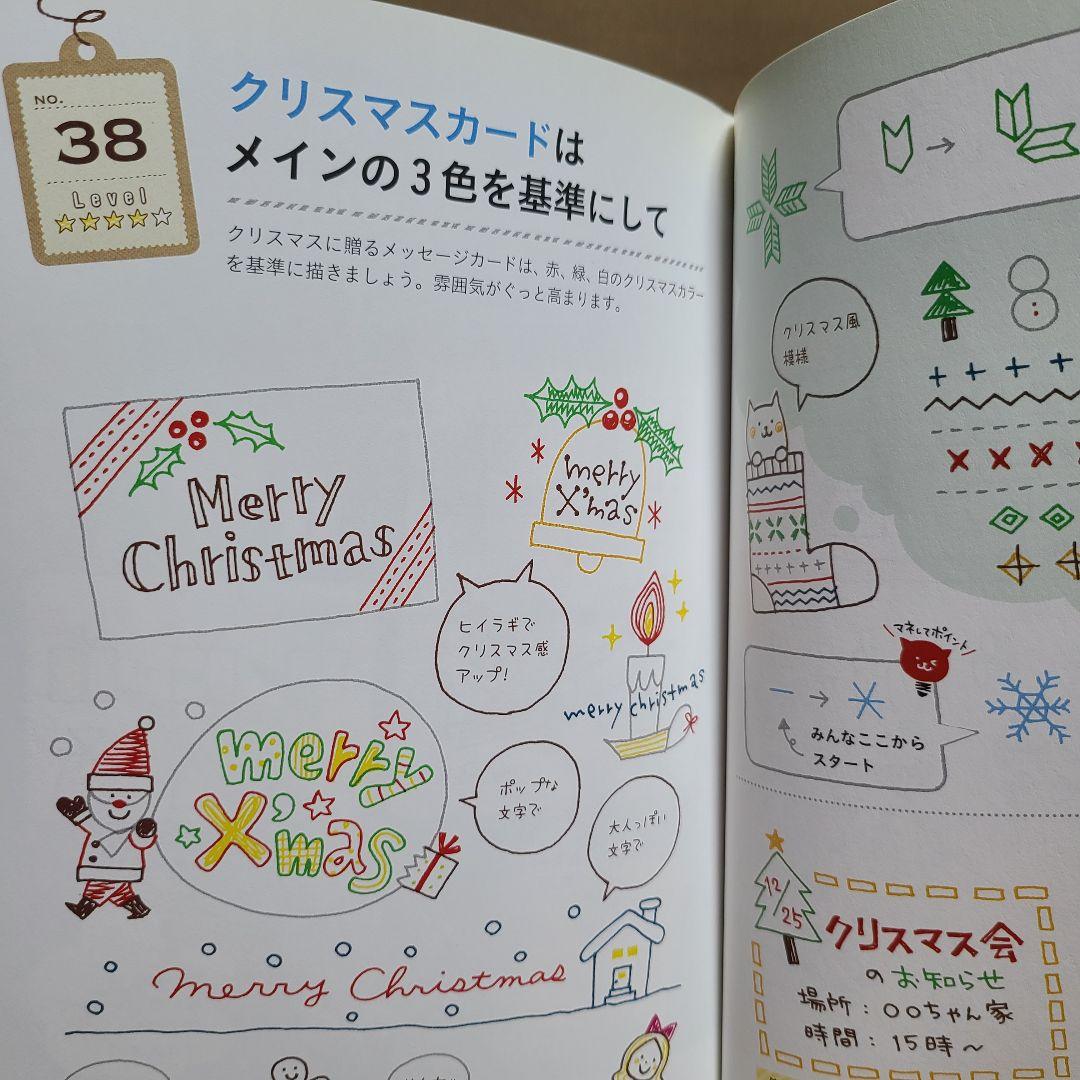 NO.
38
Level
クリスマスカードは
メインの3色を基準にして
クリスマスに贈るメッセージカードは、赤、緑、白のクリスマスカラー
を基準に描きましょう。雰囲気がぐっと高まります。
Merry
Christmas
merry
X'mas
ヒイラギで
クリスマス感
アップ!
merry christmas
merry
X'mas
ポップな
文字で
大人っぽい
文字で
Merry Christmas
クリスマス風
模様
マネしてポイント
みんなここから
スタート
12/25
クリスマス会
のお知らせ
場所:○○ちゃん家
時間:15時~